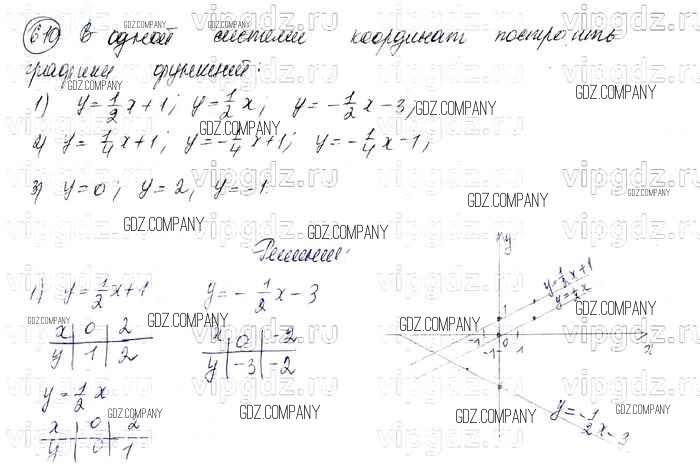 610 В одной системе координат построить
графики функций:
1) y=1/2x+1; y=1/2x; y=-1/2x-3;
2) y=1/4x+1; y=-1/4x+1; y=-1/4x-1;
3) y=0; y=2; y=-1
Решение:
1) y=1/2x+1 y=-1/2x-3
x 0 2
y 1 2
x 0 -2
y -3 -2
y=1/2x
x 0 2
y 0 1
y
y=1/2x+1
y=1/2x
1
-1 0 1
-1
x
y=-1/2x-3
GDZ.COMPANY
vipgdz.ru